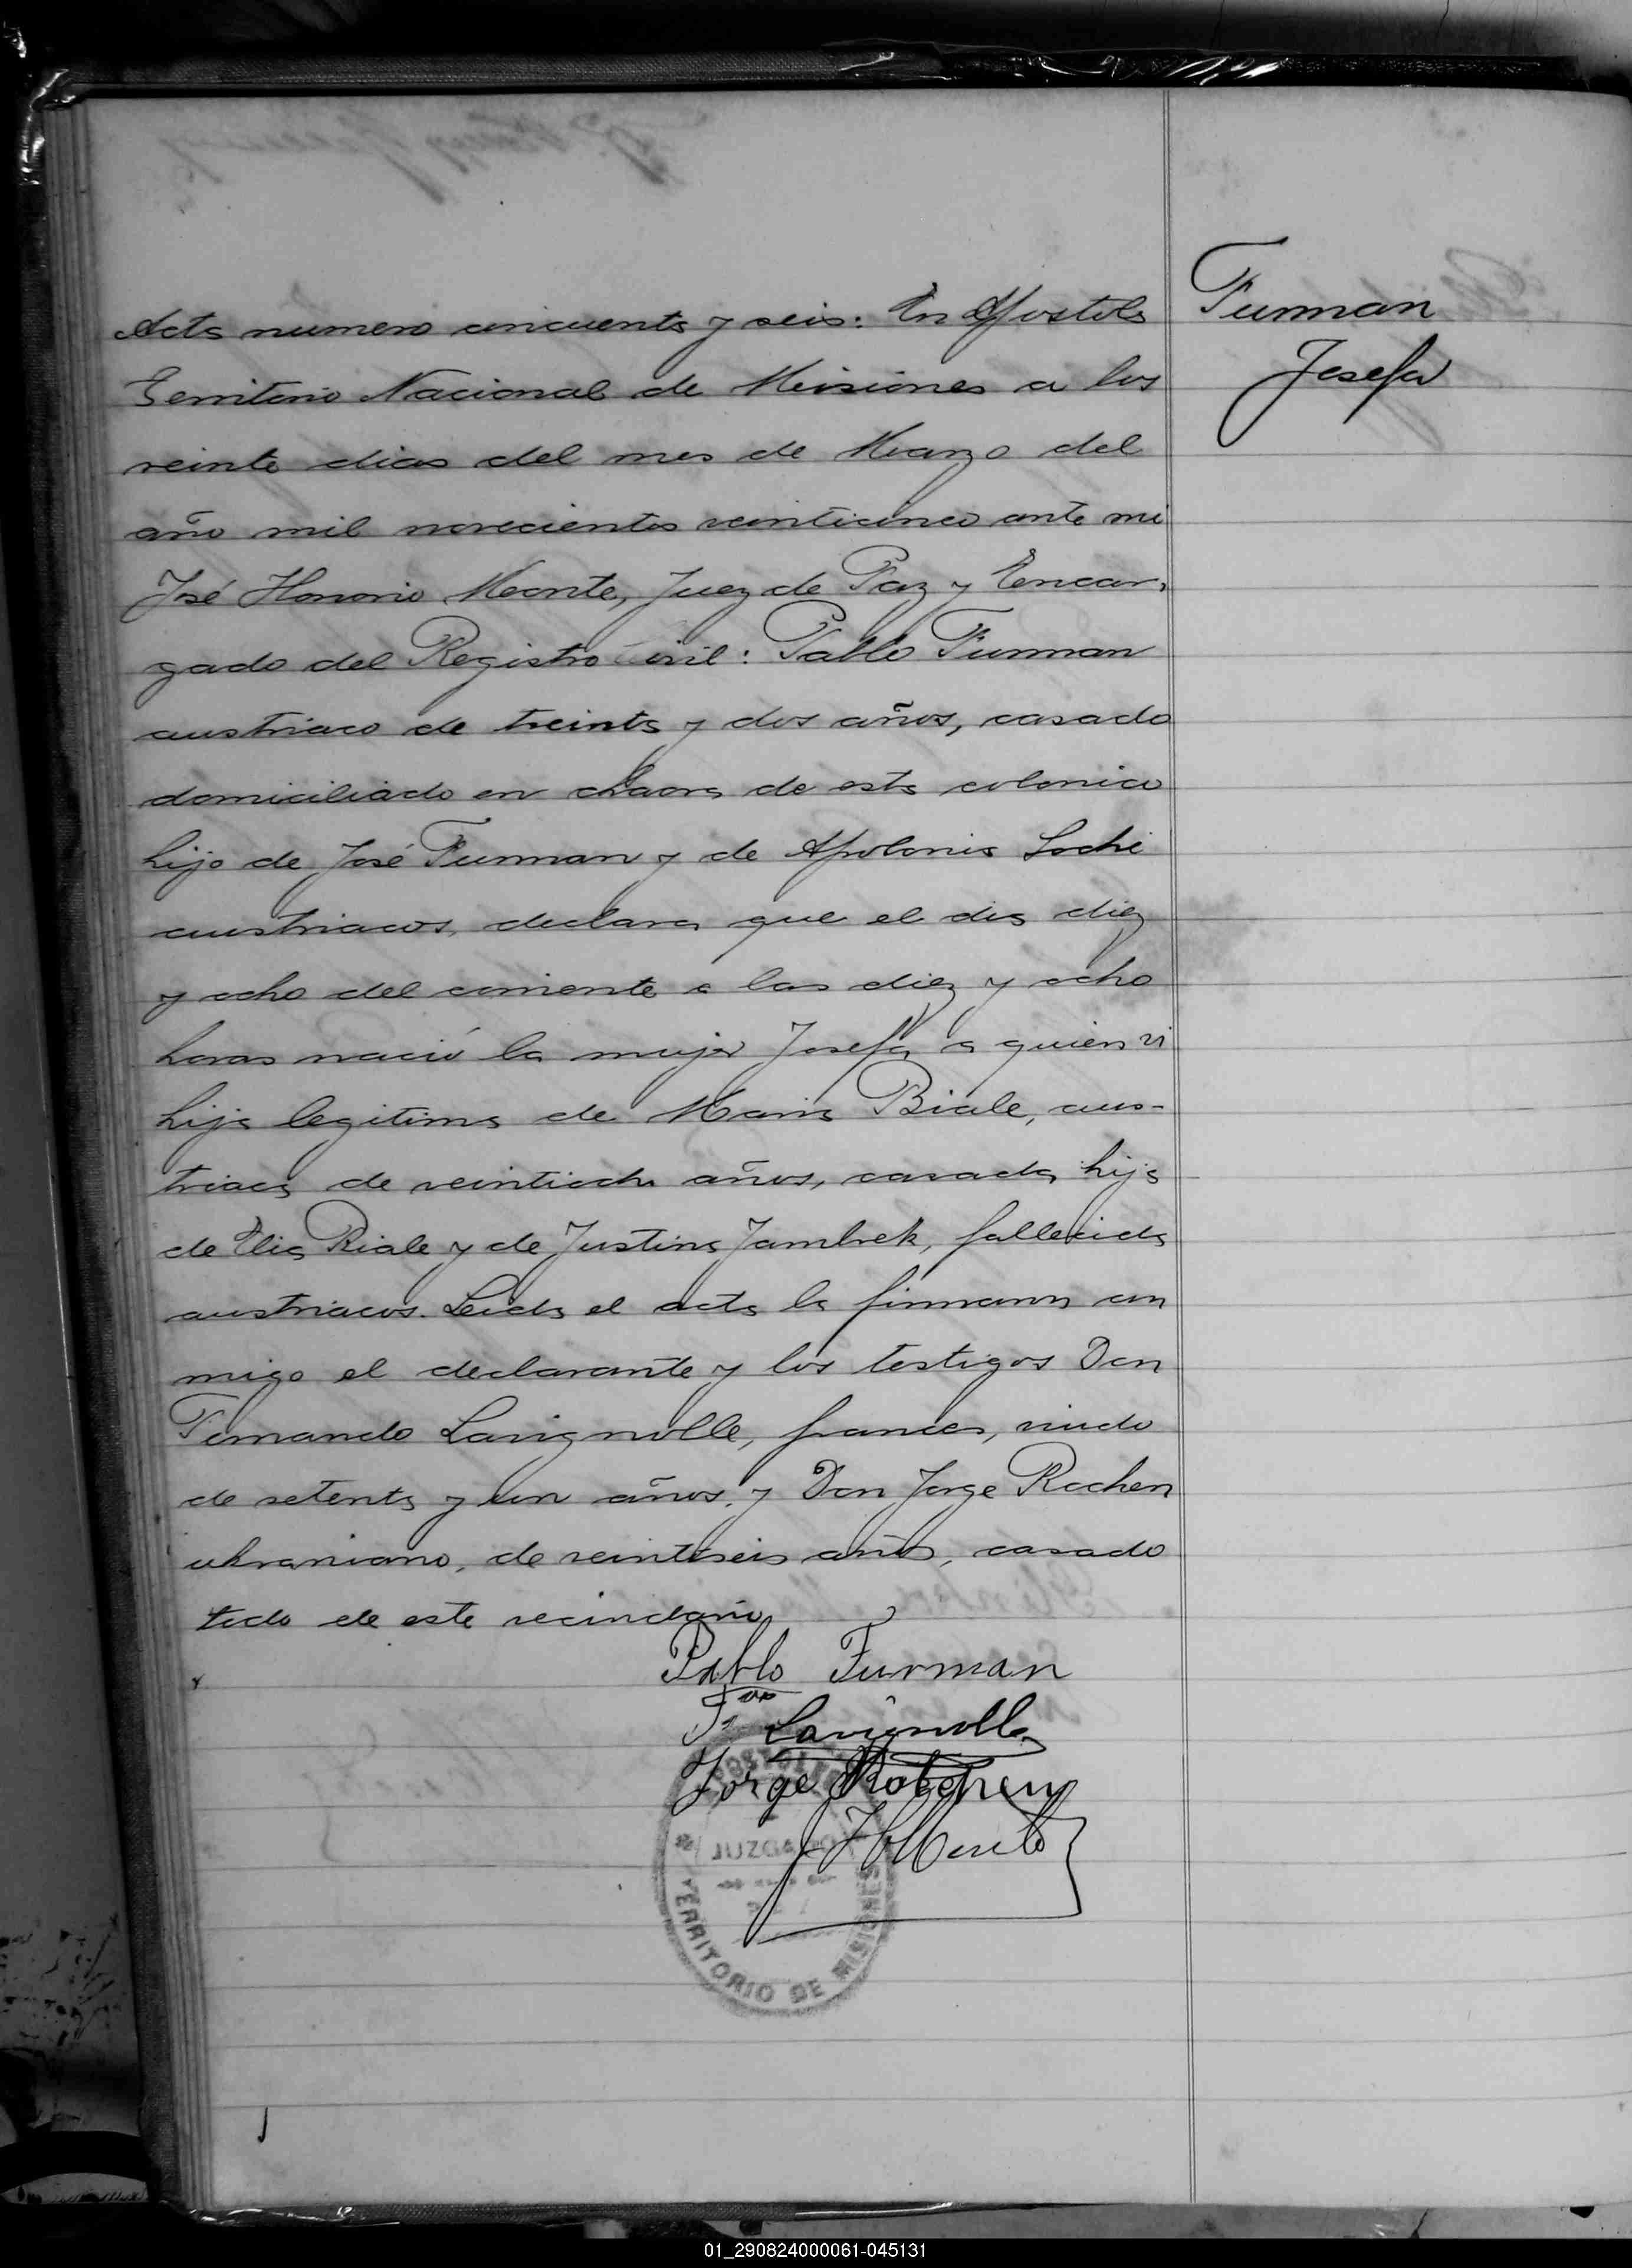 Furman
Josefa
Acta numero cincuenta y seis: En Apostoles
Territorio Nacional de Misiones a los
veinte dias del mes de Marzo del
año mil novecientos veinticinco ante mi
José Honorio Monte, Juez de Paz y Encar-
gado del Registro Civil: Pablo Furman
austriaco de treinta y dos años, casado
domiciliado en chacra de esta colonia
hijo de José Furman y de Apolonia Sochi
austriacos, declara que el dia diez
y ocho del corriente a las diez y ocho
horas nació la mujer Josefa a quien vi
hija legitima de Maria Biale, aus-
triaca de veintiocho años, casada, hija
de Elia Biale y de Justina Jambrek, fallecida
austriacos. Leida el acta la firmaron con
migo el declarante y los testigos Don
Fernando Lavignolle, frances, viudo
de setenta y un años, y Don Jorge Rochen
ukraniano, de veintiseis años, casado
todo de este vecindario
Pablo Furman
Lavignolle
Jorge
JHMonte
JUZGADO
TERRITORIO DE MISIONES
01_290824000061-045131